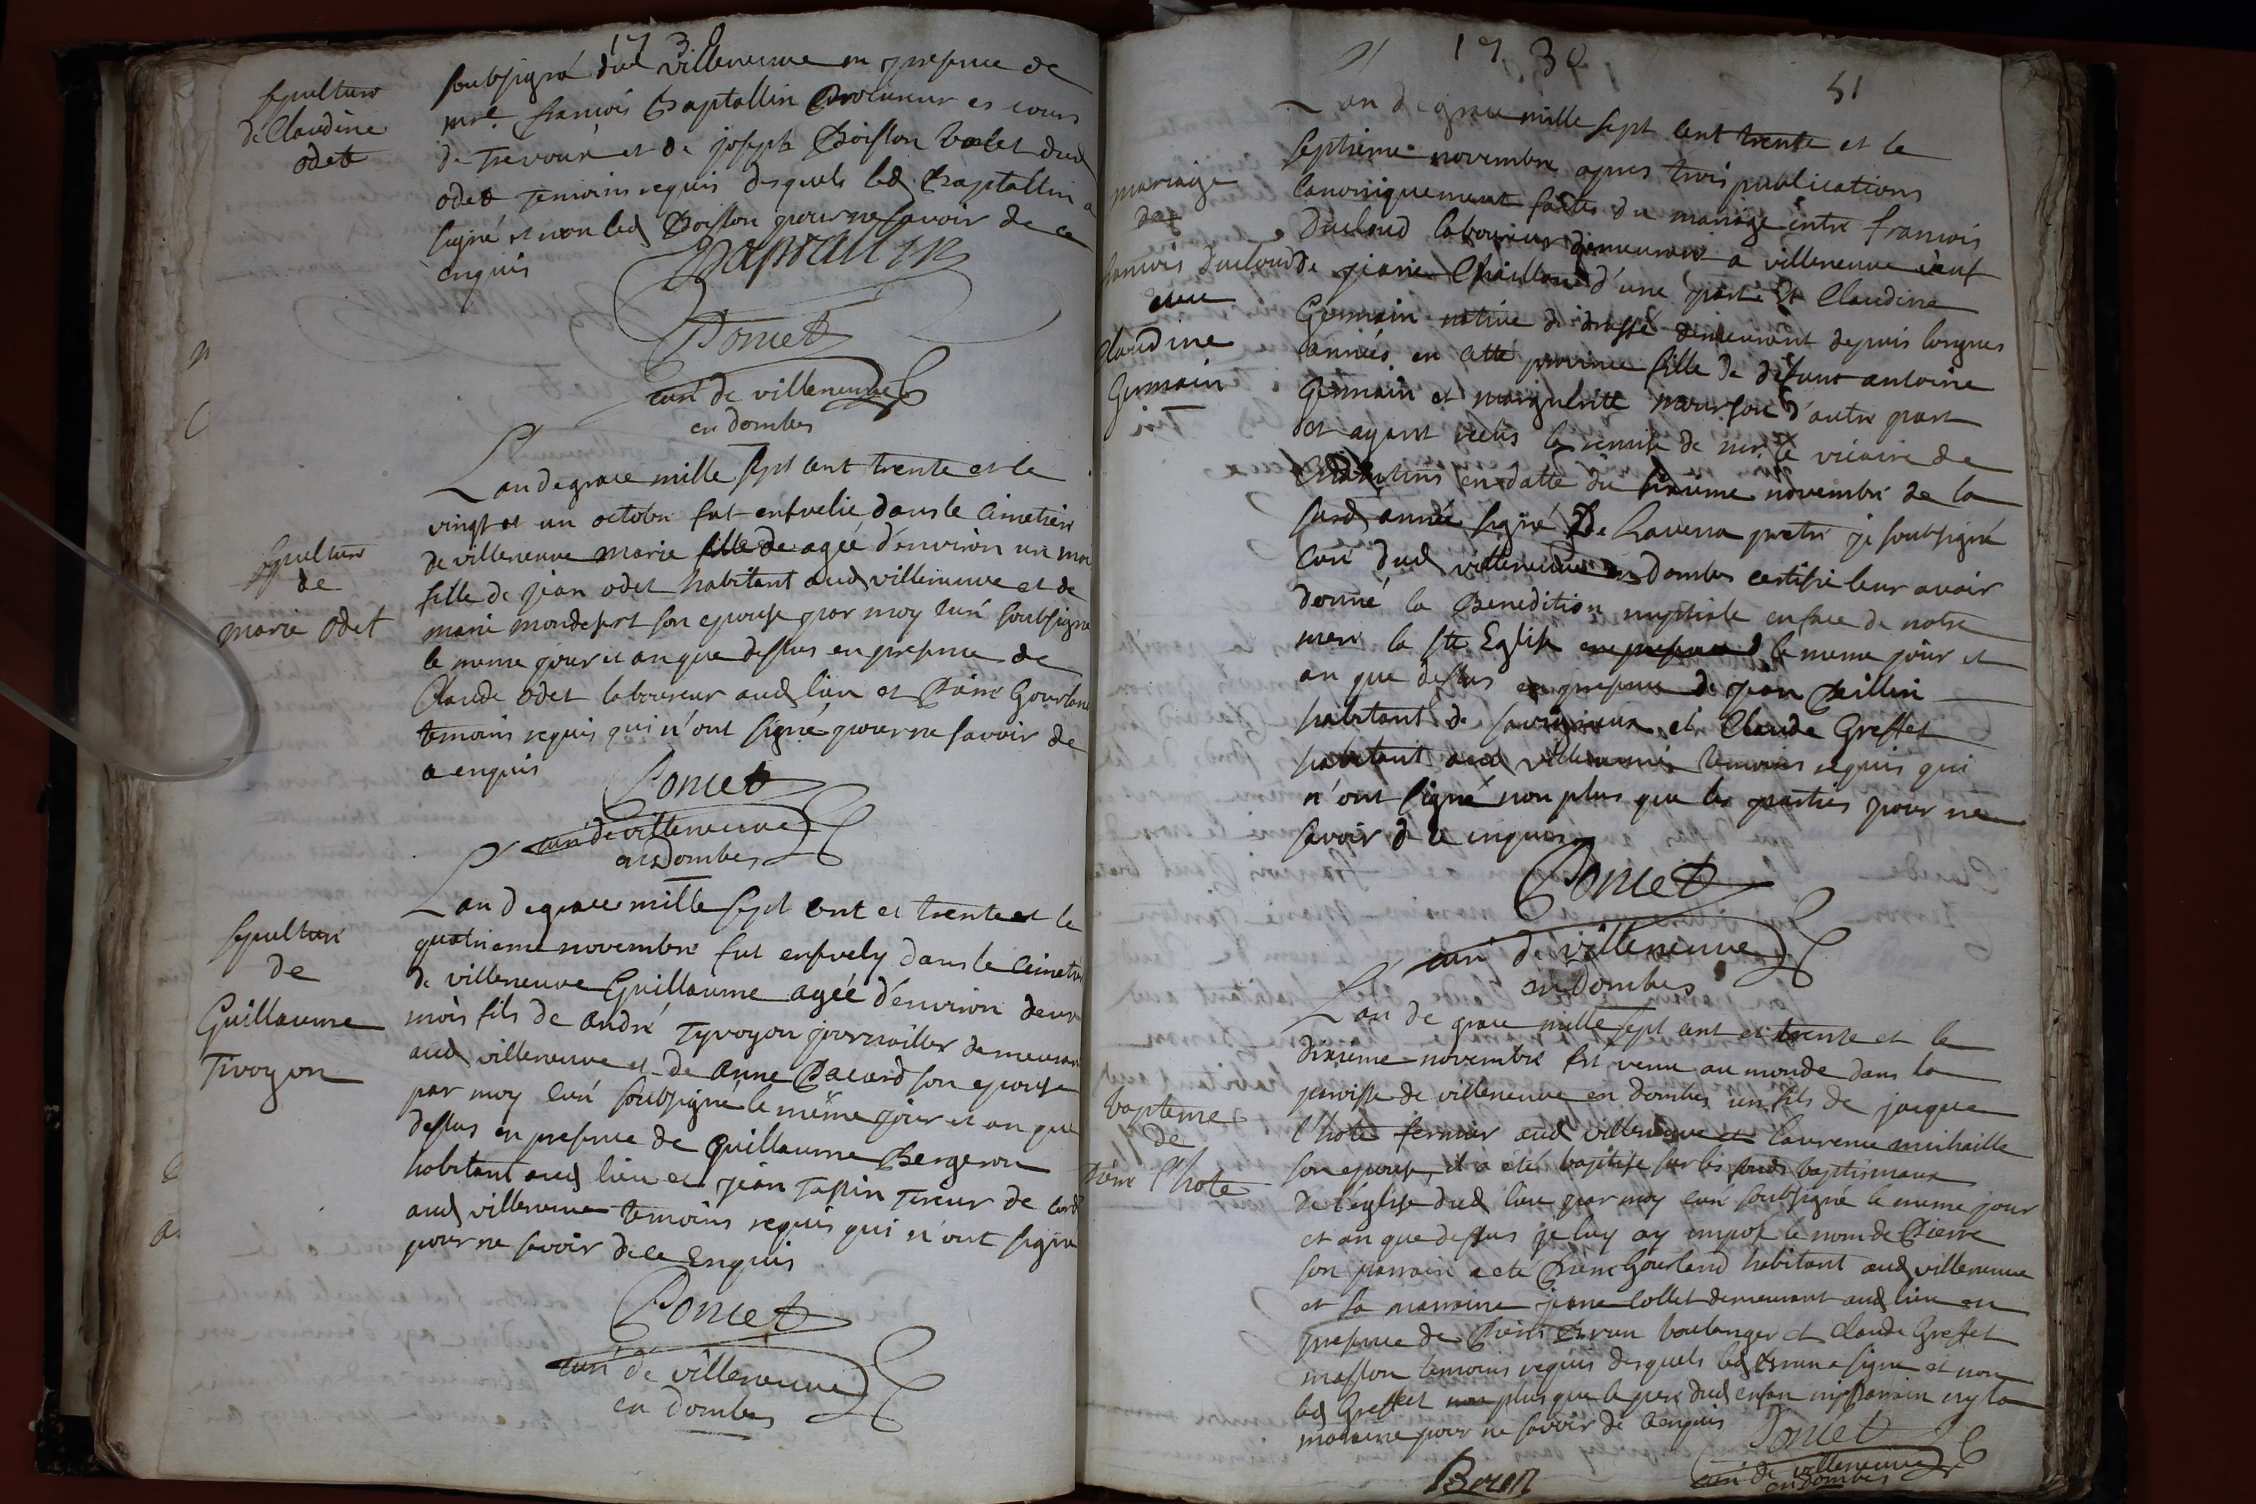 1730
sepulture
de Claudine
odet
soubsigné dud villeneuve en presence de
mre. francois Traptallin Procureur es cours
de Trevoux et de joseph Boisson valet dud
odet Temoins requis desquels led Traptallin a
signé et non led Boisson pour ne savoir de ce
enquis
Poncet
curé de villeneuve
en dombes
sepulture
de
marie odet
L'an de grace mille sept cent trente et le
vingt et un octobre fut ensevelie dans le cimetiere
de villeneuve marie fille de agéé d'environ un moi
fille de jean odet habitant aud villeneuve et de
marie mondesert son epouse par moy curé soubsigné
le meme jour et an que dessus en presence de
Claude odet laboureur aud lieu et Pierre Gourland
temoins requis qui n'ont signé pour ne savoir de
ce enquis
Poncet
curé de villeneuve
en Dombes
sepulture
de
Guillaume
Tivoyon
L'an de grace mille sept cent et trente et le
quatrieme novembre fut ensevely dans le cimetiere
de villeneuve Guillaume agéé d'environ deux
mois fils de andré Tyvoyon journailler demeurant
aud villeneuve et de anne Pacard son epouse
par moy curé soubsigné le même jour et an que
dessus en presence de Guillaume Bergeron
habitant aud lieu et jean Tapin Tireur de cord
aud villeneuve temoins requis qui n'ont signé
pour ne savoir de ce Enquis
Poncet
curé de villeneuve
en dombes
1730
51
mariage
de
francois Ducloud
avec
Claudine
Germain
L'an de grace mille sept cent trente et le
septieme novembre apres trois publications
canoniquement faites du mariage entre francois
Ducloud laboureur demeurant a villeneuve veuf
de jeanne Chaillard d'une part Et Claudine
Germain native de demeurant depuis longues
années en cette province fille de défunt antoine
Germain et marguerite d'autre part
et ayant veus la remise de mr. le vicaire de
en datte du sixieme novembre de la
susd année signé De Laverra pretre je soubsigné
curé dud villeneuve en Dombes certifie leur avoir
donné la Benediction nuptiale en face de notre
mere la ste Eglise en presence d le meme jour et
an que dessus en presence de jean Peillin
habitant de savigneux et Claude Greffet
habitant aud villeneuve temoins requis qui
n'ont signé non plus que les parties pour ne
savoir de ce enquis
Poncet
curé de villeneuve
en Dombes
bapteme
de
Pierre l'hote
L'an de grace mille sept cent et trente et le
dixieme novembre est venu au monde dans la
paroisse de villeneuve en dombes un fils de jacque
l'hote fermier aud villeneuve et laurence michaille
son epouse, il a été baptise sur les fonds baptismaux
de l'eglise dud lieu par moy curé soubsigné le meme jour
et an que dessus je luy ay imposé le nom de Pierre
son parrain a été Pierre Gourland habitant aud villeneuve
et sa marraine jeanne Collet demeurant aud lieu en
presence de Pierre Brun boulanger et Claude Greffet
masson temoins requis desquels led Brun a signé et non
led Greffet non plus que le pere dud enfan ny parrain ny la
maraine pour ne savoir de ce enquis
Poncet
curé de villeneuve
en dombes